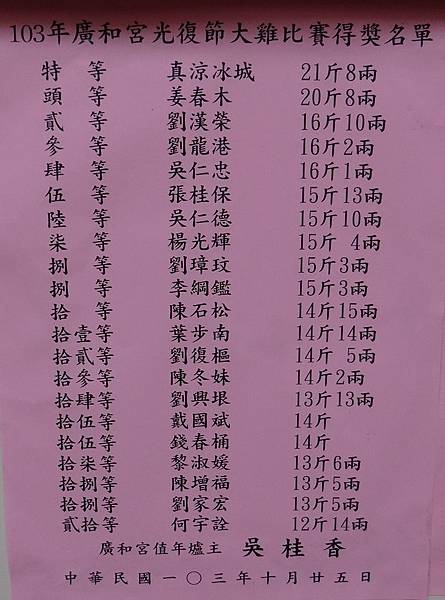 103年廣和宮光復節大雞比賽得獎名單
特 等 真涼冰城 21斤8兩
頭 等 姜春木 20斤8兩
貳 等 劉漢榮 16斤10兩
參 等 劉龍港 16斤2兩
肆 等 吳仁忠 16斤1兩
伍 等 張桂保 15斤13兩
陸 等 吳仁德 15斤10兩
柒 等 楊光輝 15斤 4兩
捌 等 劉璋玟 15斤3兩
捌 等 李綱鑑 15斤3兩
拾 等 陳石松 14斤15兩
拾壹等 葉步南 14斤14兩
拾貳等 劉復樞 14斤 5兩
拾參等 陳冬妹 14斤2兩
拾肆等 劉興垠 13斤13兩
拾伍等 戴國斌 14斤
拾伍等 錢春桶 14斤
拾柒等 黎淑媛 13斤6兩
拾捌等 陳增福 13斤5兩
拾捌等 劉家宏 13斤5兩
貳拾等 何宇詮 12斤14兩
廣和宮值年爐主 吳桂香
中華民國一〇三年十月廿五日